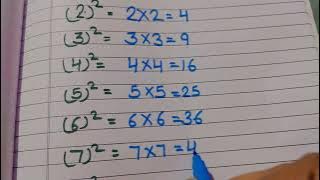 (2)² = 2×2=4
(3)² = 3×3=9
(4)² = 4×4=16
(5)² = 5×5=25
(6)² = 6×6=36
(7)² = 7×7=4